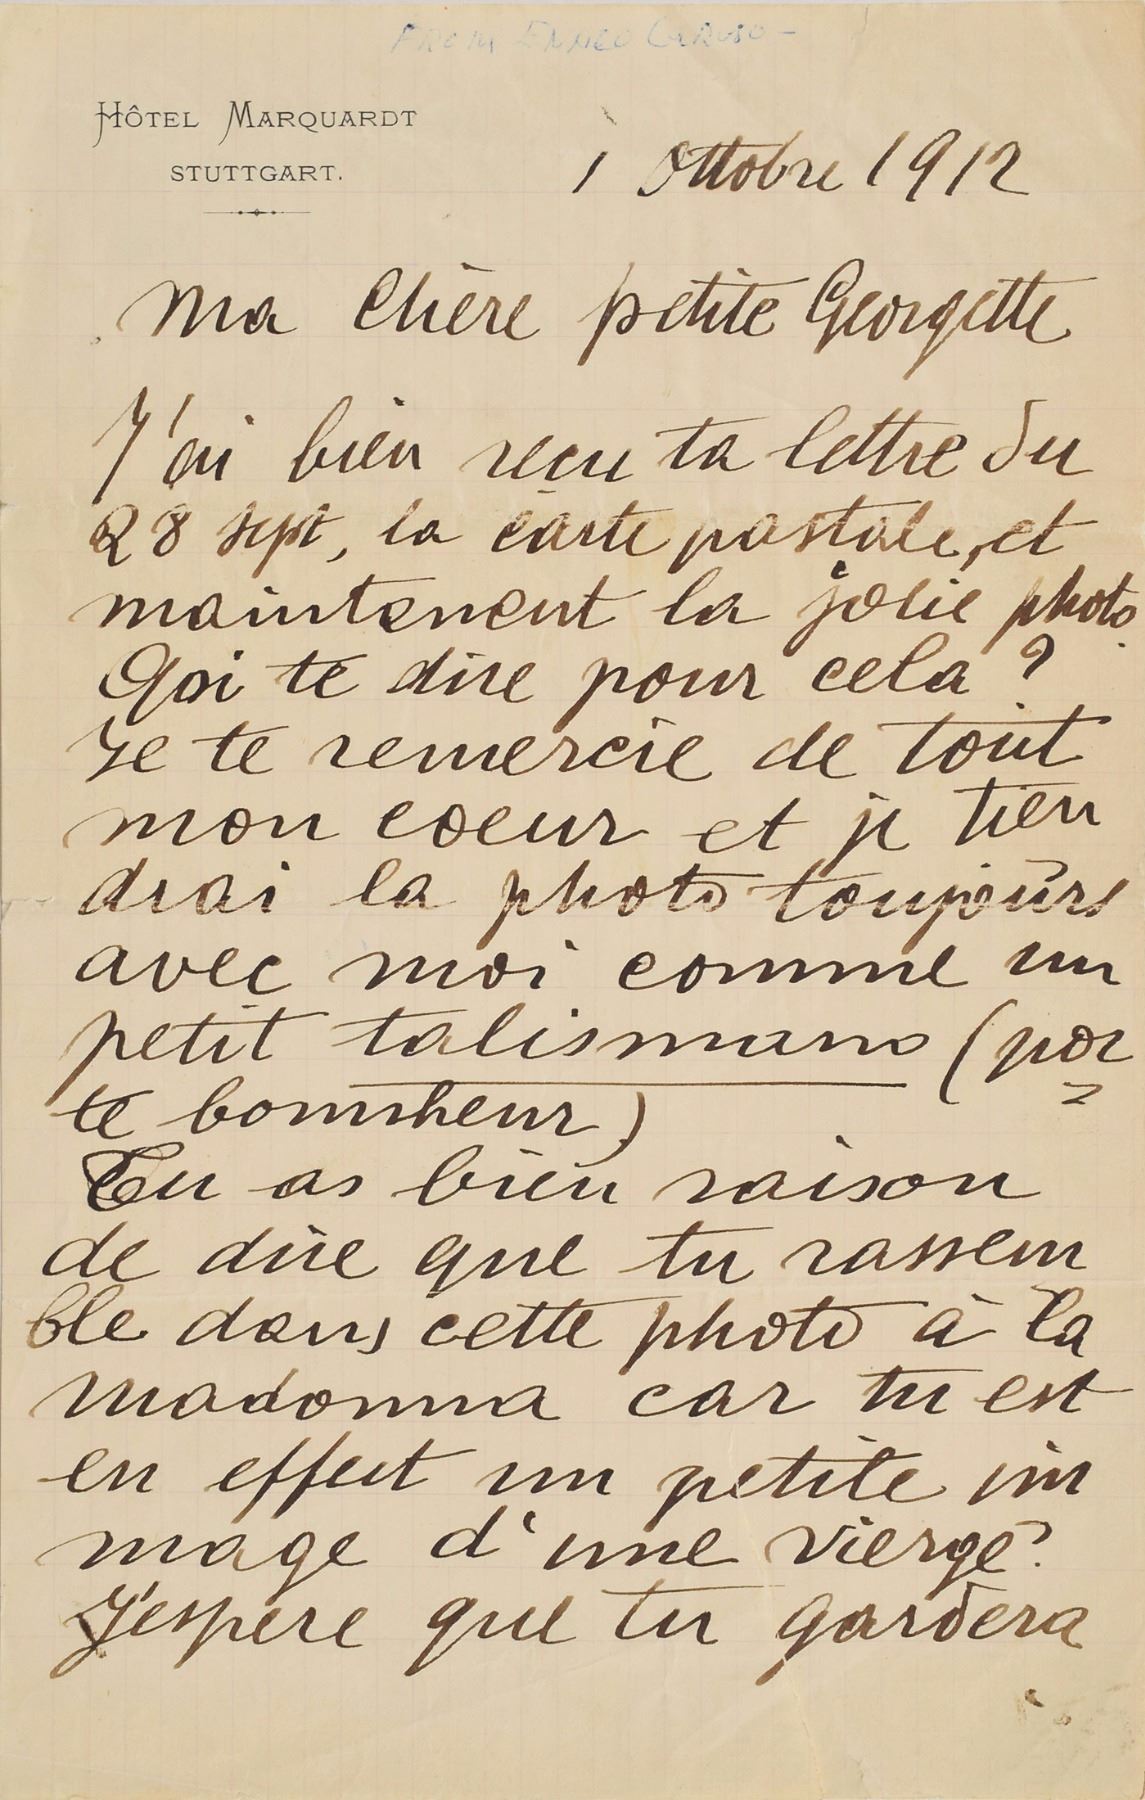 FROM ENRICO CARUSO -
HÔTEL MARQUARDT
STUTTGART.
1 Ottobre 1912
Ma Chère petite Georgette
J'ai bien reçu ta lettre du
28 sept, la carte postale, et
maintenent la jolie photo.
Qoi te dire pour cela ?
Je te remercie de tout
mon coeur et je tien
drai la photo toujours
avec moi comme un
petit talismano (por
te bonnheur)
Tu as bien raison
de dire que tu rassem
ble dans cette photo à la
madonna car tu est
en effect un petite im
mage d'une vierge?
J'espere que tu gardera